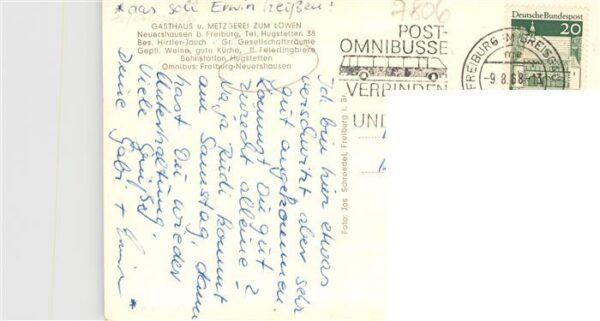 *das soll Erwin heißen!
7806
GASTHAUS u. METZGEREI ZUM LÖWEN
Neuershausen b. Freiburg, Tel. Hugstetten 38
Bes. Hirtler-Jauch - Gr. Gesellschaftsräume
Gepfl. Weine, gute Küche, ff. Feierlingbiere
Bahnstation Hugstetten
Omnibus: Freiburg-Neuershausen
POST-
OMNIBUSSE
VERBINDEN
UND
FREIBURG IM BREISGAU
mc
-9.8.68-13
Deutsche Bundespost
20
Ich bin hier etwas
verschwitzt aber sehr
gut angekommen.
Kommst Du gut
zurecht alleine?
Naja Rudi kommt
am Samstag, dann
hast Du wieder
Unterhaltung.
Viele Grüße
Deine Gabi +
Foto: Jos. Schroedel, Freiburg i. Br.